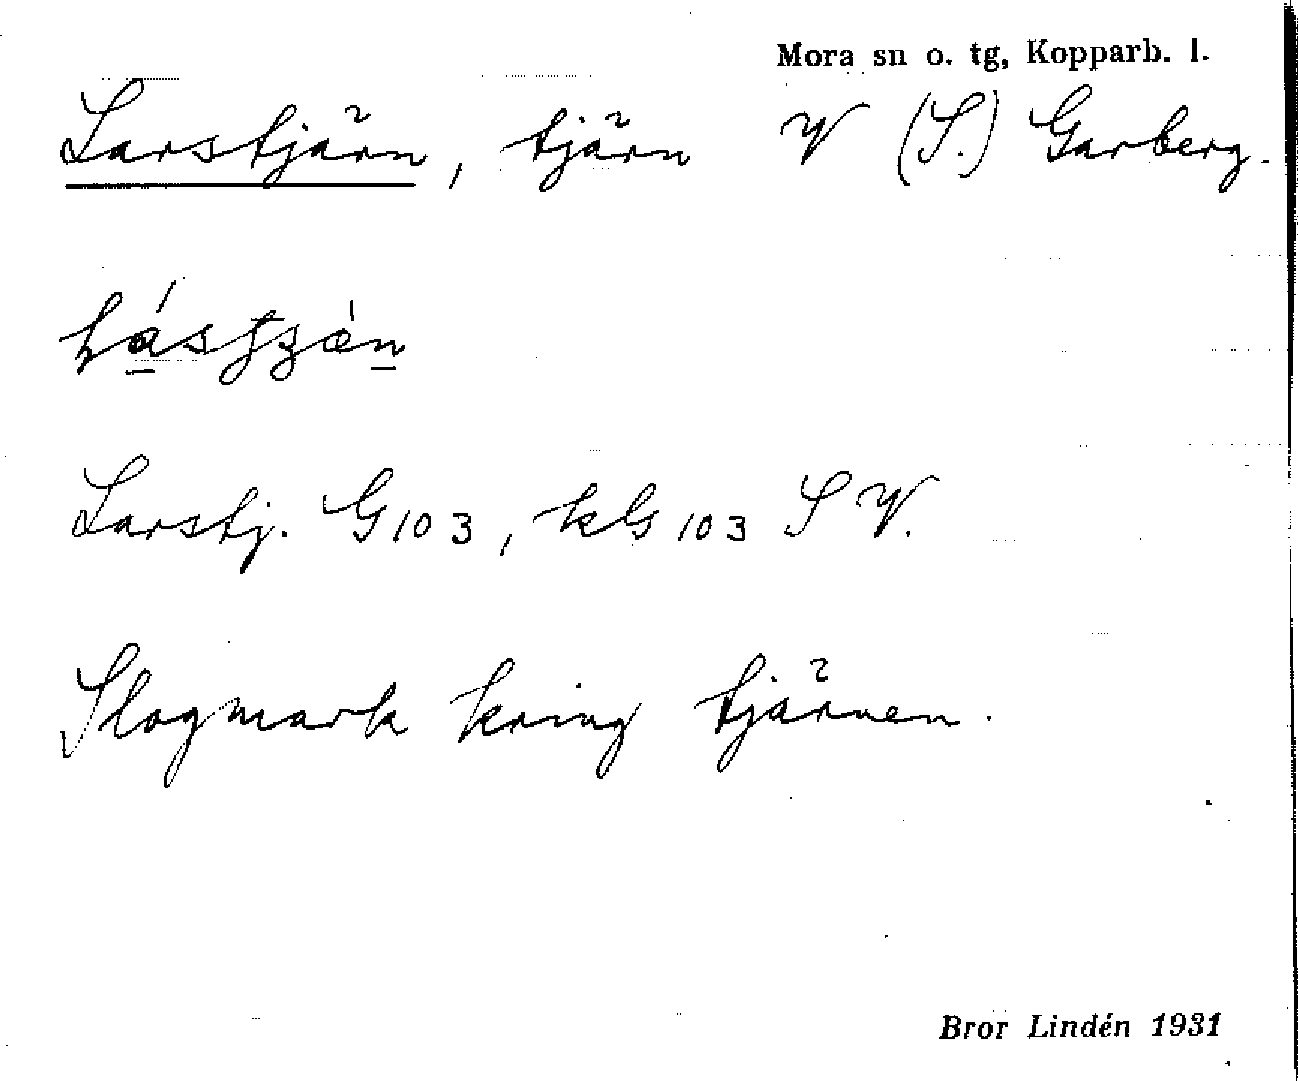 Mora sn o. tg, Kopparb. l.
Larstjärn, tjärn V (S.) Garberg.
Larstj. G 103, kG 103 S V.
Slogmark kring tjärnen.
Bror Lindén 1931